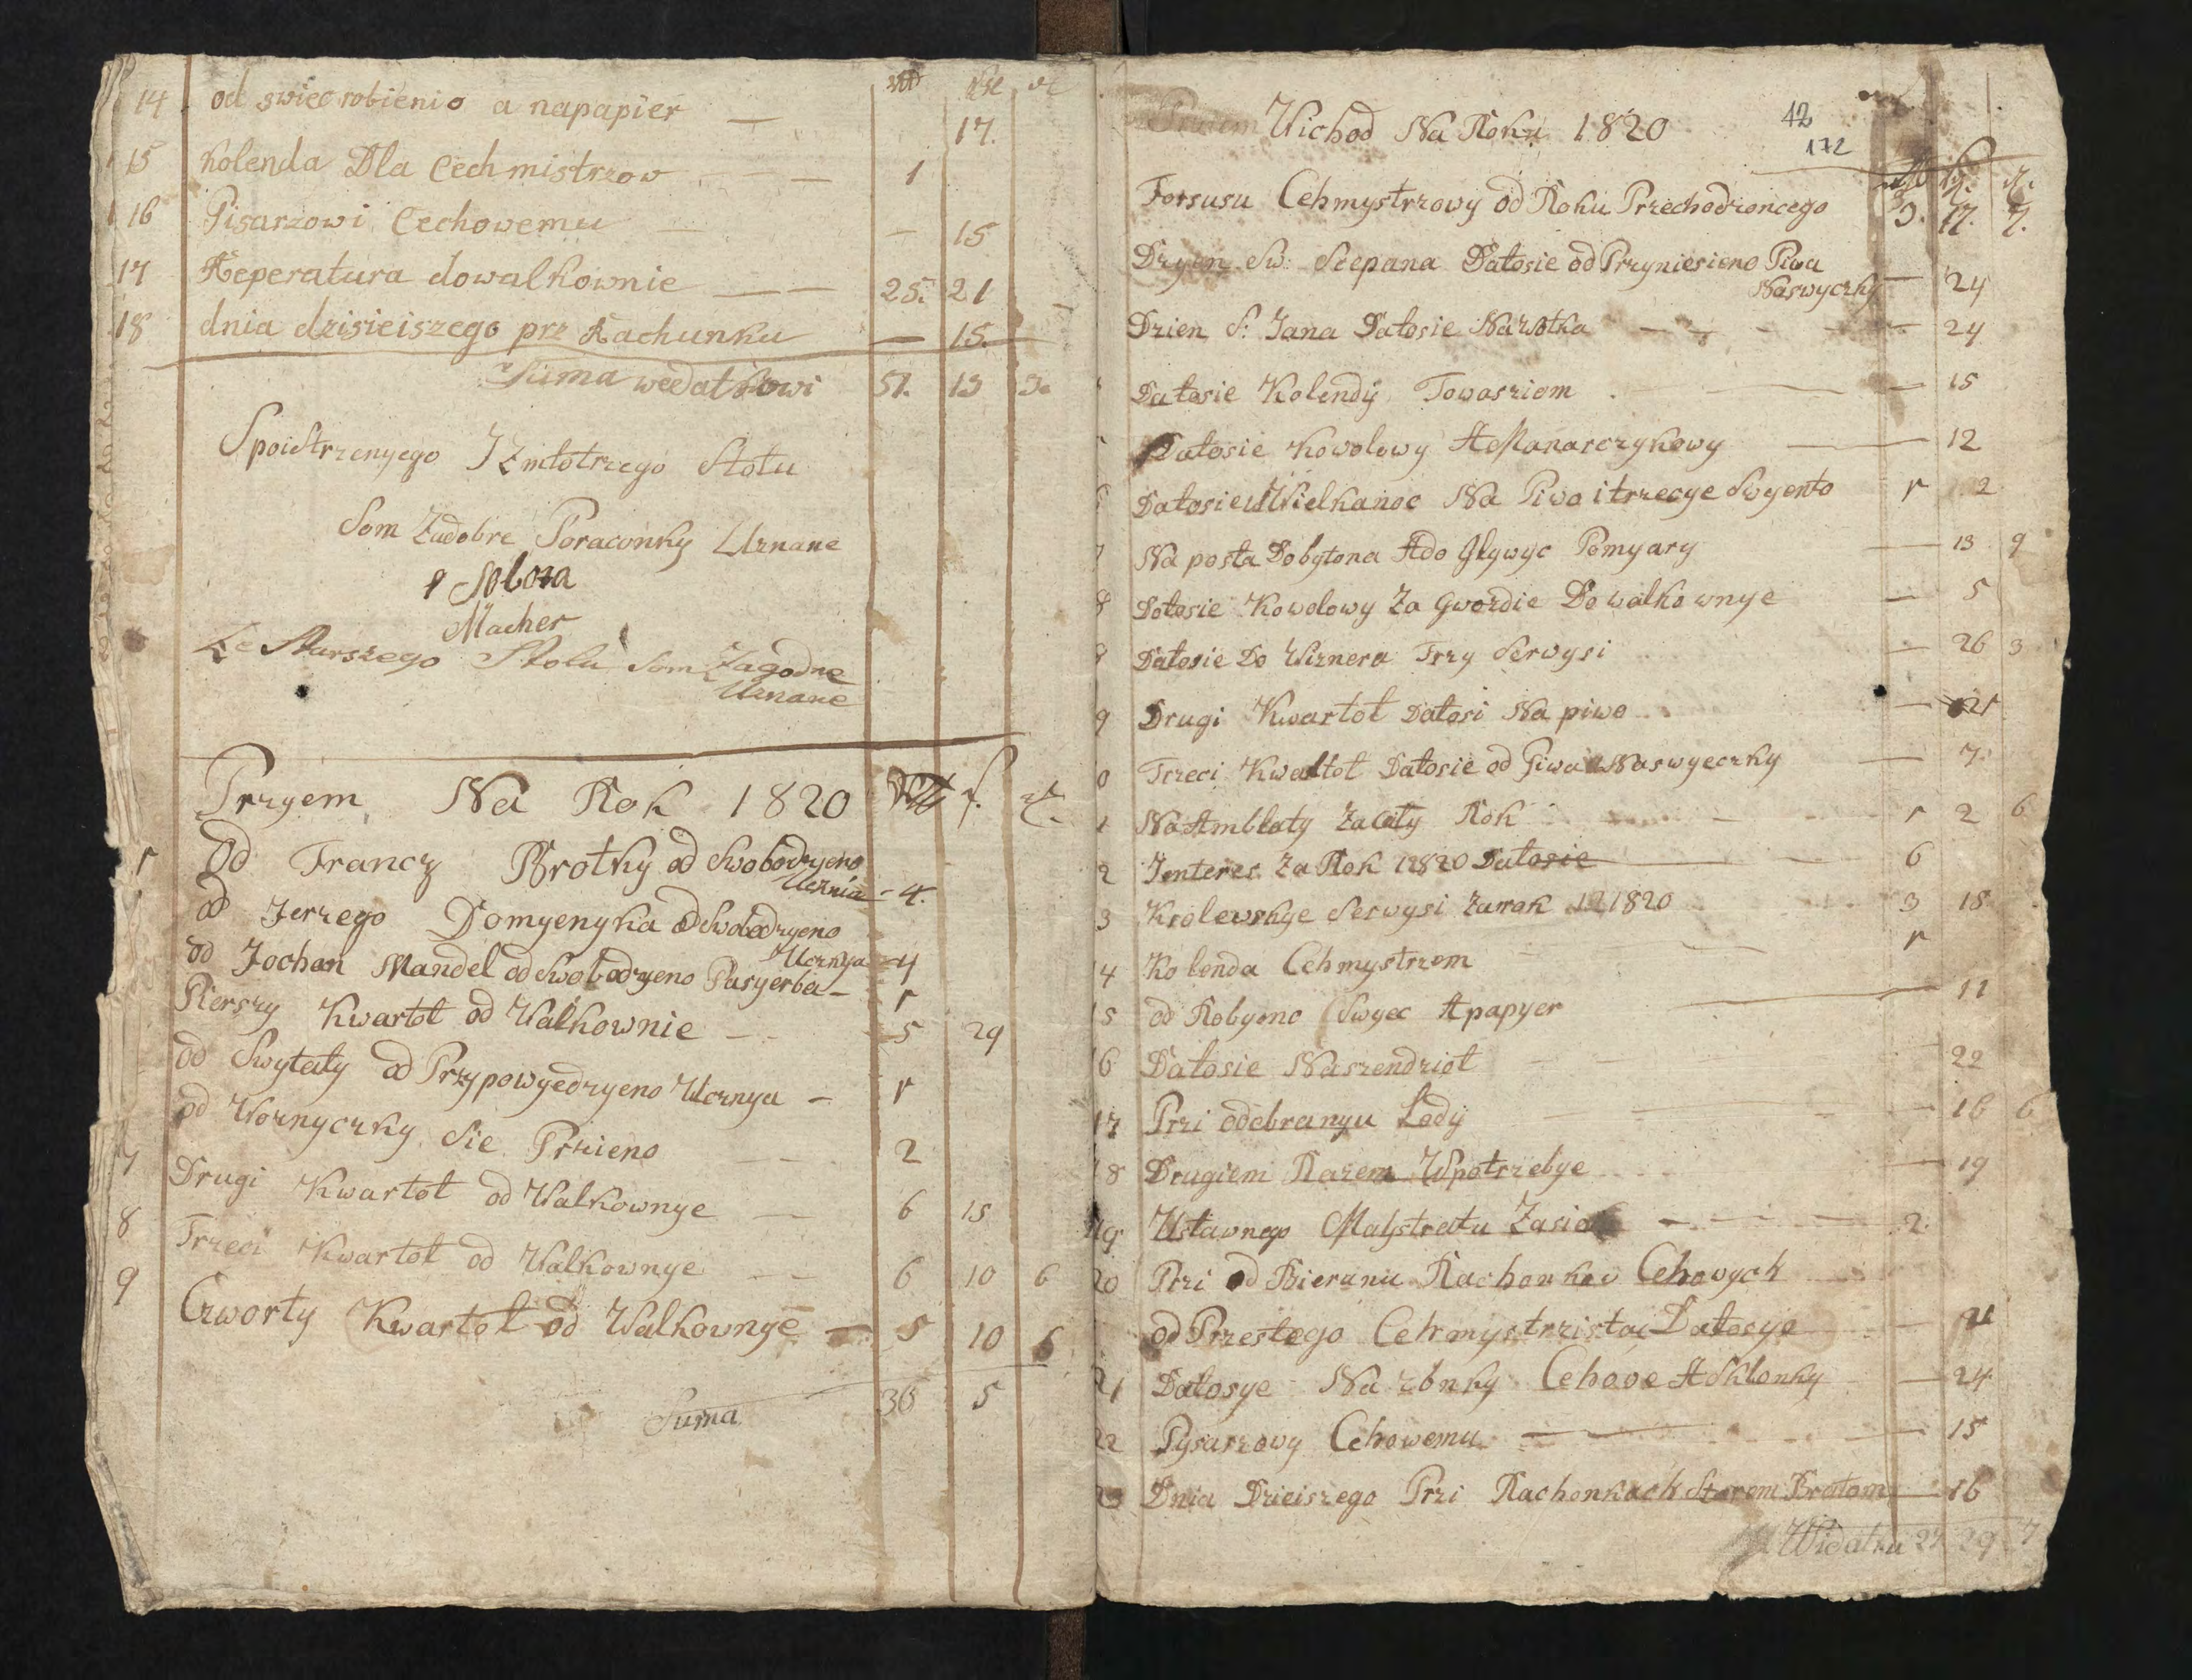 14 od swiec robienio a napapier — 17.
15 Kolenda Dla Cechmistrzow — 1
16 Pisarzowi Cechowemu — 15
17 Reperatura dowalkownie — 25. 21
18 dnia dzisieiszego prz Rachunku — 15.
Suma wedatkowi 51. 13 3
Spoistrzenyego I Zmlotrzego Stołu
Som Zadobre Poraconky Uznane
Macher
Ze Starszego Stolu Som Zagodne
Uznane
Przyem Na Rok 1820
1 Od Francz Brotky od Swobodzyeno
Ucznia - 4.
od Jerzego Domyenyka od Swobodzyeno
Ucznya - 4
od Jochan Mandel od Swobodzyeno Pasyerba - 1
Pierszy Kwartoł od Walkownie - 5 29
od Swytały od Przypowyedzyeno Ucznya - 1
od Wornyczky Sie Przieno 2
7 Drugi Kwartoł od Walkownye 6 15
8 Trzeci Kwartoł od Walkownye 6 10 6
9 Czworty Kwartoł od Walkownye - 5 10 6
Suma 36 5
Wichod Na Roku 1820
42
172
Forsusu Cehmystrzowy od Roku Przechodzoncego 3. 17. 7.
Dzyen Sw: Scepana Datosie od Przyniesieno Piwa
Naswyczky — 24
Dzien S: Jana Datosie Nawotka — 24
Datosie Kolendÿ Towarziom — 15
Datosie Kowolowy A Manarczykowy — 12
6 Datosie W Wielkanoc Na Piwo i trzecye Swyento 1 2
7 Na posła Dobytona Ado Glywyc Pomyary — 13 9
8 Dotosie Kowolowy Za Gwozdie Do walkownye — 5
9 Datosie Do Wiznera Trzy Serwysi — 26 3
9 Drugi Kwartoł Datosi Na piwo — 21
0 Trzeci Kwaltoł Datosie od Piwa Naswyeczky — 7.
1 Na Ambłaty Zacały Rok 1 2 6
2 Jnteres Za Rok 1820 Datosie — 6
3 Krolewskye Serwysi Zarok 1820 3 18
4 Kolenda Cehmystrzom 1
15 od Robyeno Swyec A papyer — 11
16 Datosie Naszendzioł 22
17 Przi odebranyu Lodÿ — 16 6
18 Drugiem Razem W potrzebye — 19
19 Ustawnego Malystratu — 2.
20 Przi od Bieranu Rachonkow Cehowych
od Przesłego Cehmystrzista Datosye — 21
21 Datosye Na zbnky Cehove A Sklonky — 24
22 Pysarzowy Cehowemu — 15
23 Dnia Dzieiszego Przi Rachonkach Starem Bratom — 16
Widatku 27 29 7